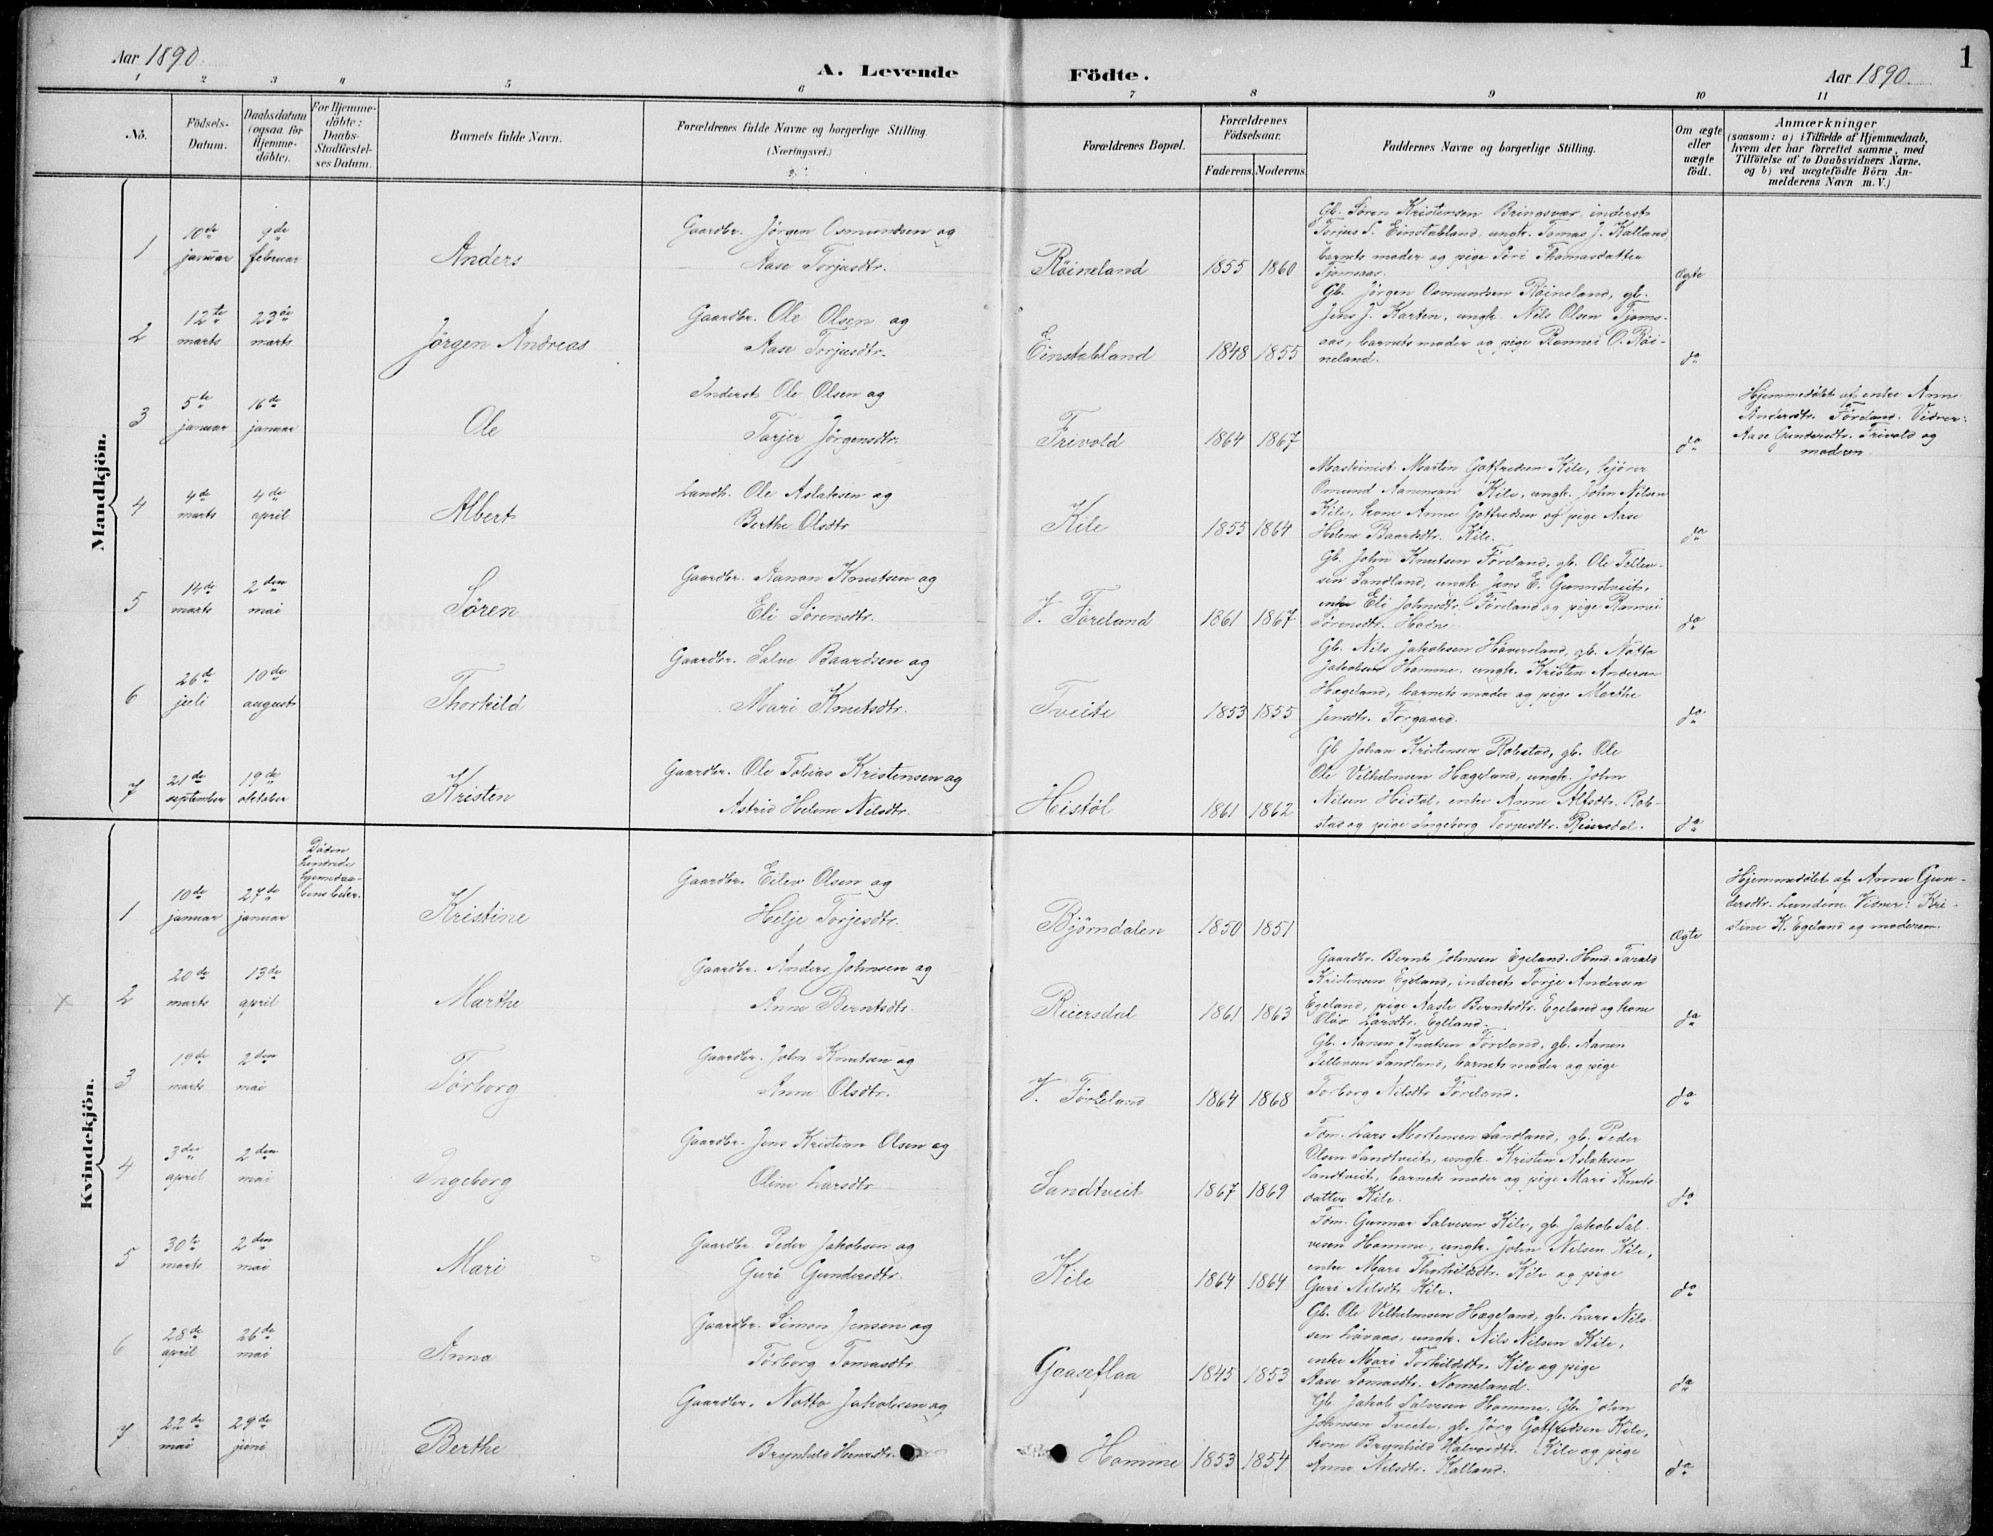 Aar 1890
A. Levende Födte.
Aar 1890
1
1 2 3 4 5 6 7 8 9 10 11
Nö.
Födsels-
Datum.
Daabsdatum
(ogsaa for
Hjemme-
döbte).
For Hjemme-
döbte:
Daabs-
Stadfæstel-
ses Datum.
Barnets fulde Navn.
Forældrenes fulde Navne og borgerlige Stilling.
(Næringsvei.)
Forældrenes Bopæl.
Forældrenes
Födselsaar.
Faderens. Moderens.
Faddernes Navne og borgerlige Stilling.
Om ægte
eller
uægte
födt.
Anmærkninger
(saasom: a) i Tilfælde af Hjemmedaab,
hvem der har forrettet samme, med
Tilföielse af to Daabsvidners Navne,
og b) ved uægtefödte Börn An-
melderens Navn m. V.)
Mandkjön.
1
10de januar
9de februar
Anders
Gaardbr. Jörgen Osmundsen og
Aase Torjusdtr.
Röineland
1855 1860
Gb. Søren Kristensen Bringsvær, inderst
Torjus S. Einstabland, ungk. Tomas J. Kalland,
barnets moder og pige Siri Thomasdatter
Tjomsaas.
Ægte
2
12te marts
23de marts
Jörgen Andreas
Gaardbr. Ole Olsen og
Aase Torjusdtr.
Einstabland
1848 1855
Gb. Jörgen Osmundsen Röineland, gb.
Jens J. Karten, ungk. Nils Olsen Tjoms-
aas, barnets moder og pige Rønnei O. Röi-
neland.
do
3
5te januar
16de januar
Ole
Inderst Ole Olsen og
Tarjer Jörgensdtr.
Trivold
1864 1867
do
Hjemmedöbt af enke Anne
Andersdtr. Förland. Vidner:
Aase Gundersdtr. Trivold og
moderen
4
4de marts
4de april
Albert
Landh. Ole Aslaksen og
Berthe Olsdtr
Kile
1855 1864
Maskinist Marten Gotfredsen Kile, kjörer
Omund Aanensen Kile, ungk. John Nilsen
Kile, kone Anne Gotfredsen og pige Aase
Helene Baardsdtr. Kile.
do
5
14de marts
2den mai
Sören
Gaardbr. Aanon Knutsen og
Eli Sörensdtr.
V. Föreland
1861 1867
Gb. John Knutsen Förland, gb. Ole Tellev-
sen Sandland, ungk. Jens E. Gumstveit,
enke Eli Johnsdtr. Föreland og pige Rannei
Sörensdtr. Hodne.
do
6
26de juli
10de august
Thorkild
Gaardbr. Salve Baardsen og
Mari Knutsdtr.
Tveite
1853 1855
Gb. Nils Jakobsen Haversland, gb. Notto
Jakobsen Homme, ungk. Kristen Andersen
Hægeland, barnets moder og pige Marthe
Jensdtr. Forgaard.
do
7
21de september
19de oktober
Kristen
Gaardbr. Ole Tobias Kristensen og
Astrid Helene Nilsdtr.
Histöl
1861 1862
Gb. Johan Kristensen Robstad, gb. Ole
Ole Vilhelmsen Hægeland, ungk. John
Nilsen Histöl, enke Anne Alfsdtr. Rob-
stad og pige Ingeborg Torjusdtr. Reiersdal.
do
Kvindekjön.
1
10de januar
27de januar
Döden
hindrede
hjemmedaa-
bens
Kristine
Gaardbr. Eilev Olsen og
Helje Torjesdtr.
Björndalen
1850 1851
Ægte
Hjemmedöbt af Anne Gun-
dersdtr. Lunden. Vidner: Kri-
stine K. Egeland og moderen.
2
20de marts
13de april
Marthe
Gaardbr. Anders Johnsen og
Anne Berntsdtr.
Reiersdal
1861 1863
Gaardbr. Bernt Johnsen Egeland. Hmd. Tarald
Kristensen Egeland, inderst Torje Andersen
Egeland, pige Aaste Berntsdtr. Egeland og kone
Olöv Larsdtr. Egeland.
do
3
19de marts
2den mai
Törborg
Gaardbr. John Knutsen og
Anne Olsdtr.
V. Föreland
1864 1868
Gb. Aanen Knutsen Förland, gb. Aanen
Tellevsen Sandland, barnets moder og pige
Torborg Nilsdtr Föreland.
do
4
3die april
2den mai
Ingeborg
Gaardbr. Jens Kristian Olsen og
Oline Larsdtr
Sandtveit
1867 1869
Töm. Lars Mortensen Sandland, gb. Peder
Olsen Sandtveit, ungk. Kristen Aslaksen
Sandtveit, barnets moder og pige Mari Knuts-
datter Kile.
do
5
30te marts
2den mai
Mari
Gaardbr. Peder Jakobsen og
Guri Gundersdtr.
Kile
1864 1864
Töm. Gunnar Salvesen Kile, gb. Jakob Sal-
vesen Homme, ungk. John Nilsen Kile,
enke Mari Thorkildsdtr. Kile og pige
Guri Nilsdtr. Kile.
do
6
28de april
26de mai
Anna
Gaardbr. Simon Jensen og
Törborg Tomasdtr
Gaaseflaa
1845 1853
Gb. Ole Vilhelmsen Hægeland, gb. Lars Nils-
sen Lövaas, ungk. Nils Nilsen Kile,
enke Mari Torkildsdtr. Kile og pige
Aase Tomasdtr. Nomeland.
do
7
22de mai
29de juni
Berthe
Gaardbr. Notto Jakobsen og
Brynhild
Homme
1853 1854
Gb. Jakob Salvesen Homme. Gb. John
Johnsen Tveite, gb. Jörg Gotfredsen Kile,
kone Brynhild Halvorsdtr. Kile og pige
Anne Nilsdtr. Kalland.
do